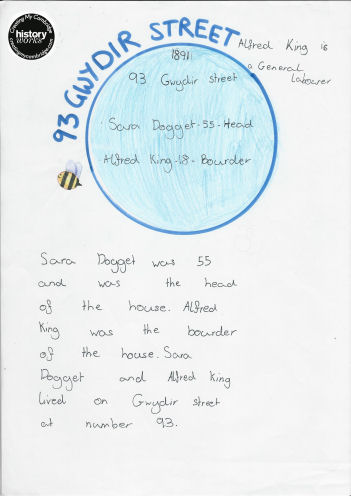 Creating My Cambridge
history
WORKS
creatingmycambridge.com
93 GWYDIR STREET
Alfred King is
a General
Labourer
1891
93 Gwydir street
Sara Dogget-55-Head
Alfred King-18-Bourder
Sara Dogget was 55
and was the head
of the house. Alfred
King was the bourder
of the house. Sara
Dogget and Alfred King
lived on Gwydir street
at number 93.